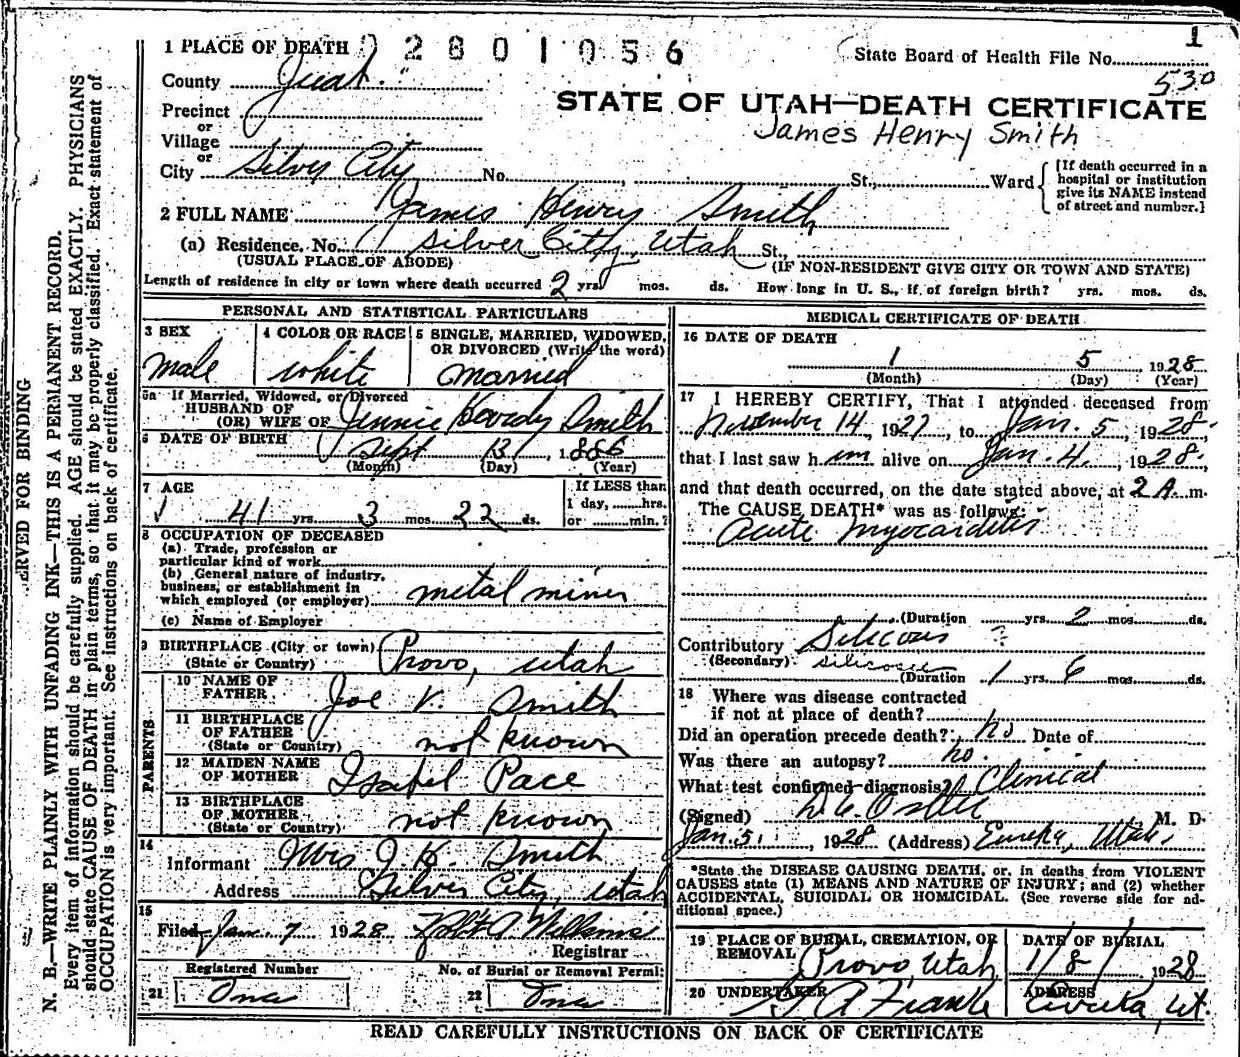 1 PLACE OF DEATH 02801056
1
State Board of Health File No.
530
County Juab
Precinct
STATE OF UTAH—DEATH CERTIFICATE
or
Village
James Henry Smith
or
City Silver City No. St., Ward
[If death occurred in a hospital or institution give its NAME instead of street and number.]
2 FULL NAME James Henry Smith
(a) Residence. No. Silver City, Utah St.,
(USUAL PLACE OF ABODE) (IF NON-RESIDENT GIVE CITY OR TOWN AND STATE)
Length of residence in city or town where death occurred 2 yrs. mos. ds. How long in U. S., if of foreign birth? yrs. mos. ds.
PERSONAL AND STATISTICAL PARTICULARS
3 SEX
male
4 COLOR OR RACE
white
5 SINGLE, MARRIED, WIDOWED,
OR DIVORCED (Write the word)
Married
5a If Married, Widowed, or Divorced
HUSBAND OF
(OR) WIFE OF Jennie Smith
6 DATE OF BIRTH
Sept 13, 1886
(Month) (Day) (Year)
7 AGE
41 yrs. 3 mos. 22 ds.
If LESS than
1 day, hrs.
or min.?
8 OCCUPATION OF DECEASED
(a) Trade, profession or
particular kind of work
(b) General nature of industry,
business, or establishment in
which employed (or employer) metal miner
(c) Name of Employer
9 BIRTHPLACE (City or town) Provo, Utah
(State or Country)
PARENTS
10 NAME OF
FATHER Joe V. Smith
11 BIRTHPLACE
OF FATHER
(State or Country) not known
12 MAIDEN NAME
OF MOTHER Isabel Pace
13 BIRTHPLACE
OF MOTHER
(State or Country) not known
14
Informant Mrs J. H. Smith
Address Silver City, Utah
15
Filed Jan. 7 1928
Registrar
Registered Number
21 One
No. of Burial or Removal Permit
22 One
MEDICAL CERTIFICATE OF DEATH
16 DATE OF DEATH
1 5 1928
(Month) (Day) (Year)
17 I HEREBY CERTIFY, That I attended deceased from
November 14, 1927, to Jan. 5, 1928,
that I last saw him alive on Jan. 4, 1928,
and that death occurred, on the date stated above, at 2 A. m.
The CAUSE DEATH* was as follows:
Acute Myocarditis
(Duration yrs. 2 mos. ds.
Contributory Silicous ?
(Secondary) silicosis
(Duration 1 yrs. 6 mos. ds.
18 Where was disease contracted
if not at place of death?
Did an operation precede death? no Date of
Was there an autopsy? no.
What test confirmed diagnosis? Clinical
(Signed) M. D.
Jan. 5, 1928 (Address) Eureka, Utah.
*State the DISEASE CAUSING DEATH, or, in deaths from VIOLENT
CAUSES state (1) MEANS AND NATURE OF INJURY; and (2) whether
ACCIDENTAL, SUICIDAL OR HOMICIDAL. (See reverse side for ad-
ditional space.)
19 PLACE OF BURIAL, CREMATION, OR
REMOVAL
Provo, Utah
DATE OF BURIAL
1/8/ 1928
20 UNDERTAKER
ADDRESS
Eureka, Ut.
READ CAREFULLY INSTRUCTIONS ON BACK OF CERTIFICATE
ERVED FOR BINDING
N. B.—WRITE PLAINLY WITH UNFADING INK—THIS IS A PERMANENT RECORD.
Every item of information should be carefully supplied. AGE should be stated EXACTLY. PHYSICIANS
should state CAUSE OF DEATH in plain terms, so that it may be properly classified. Exact statement of
OCCUPATION is very important. See instructions on back of certificate.